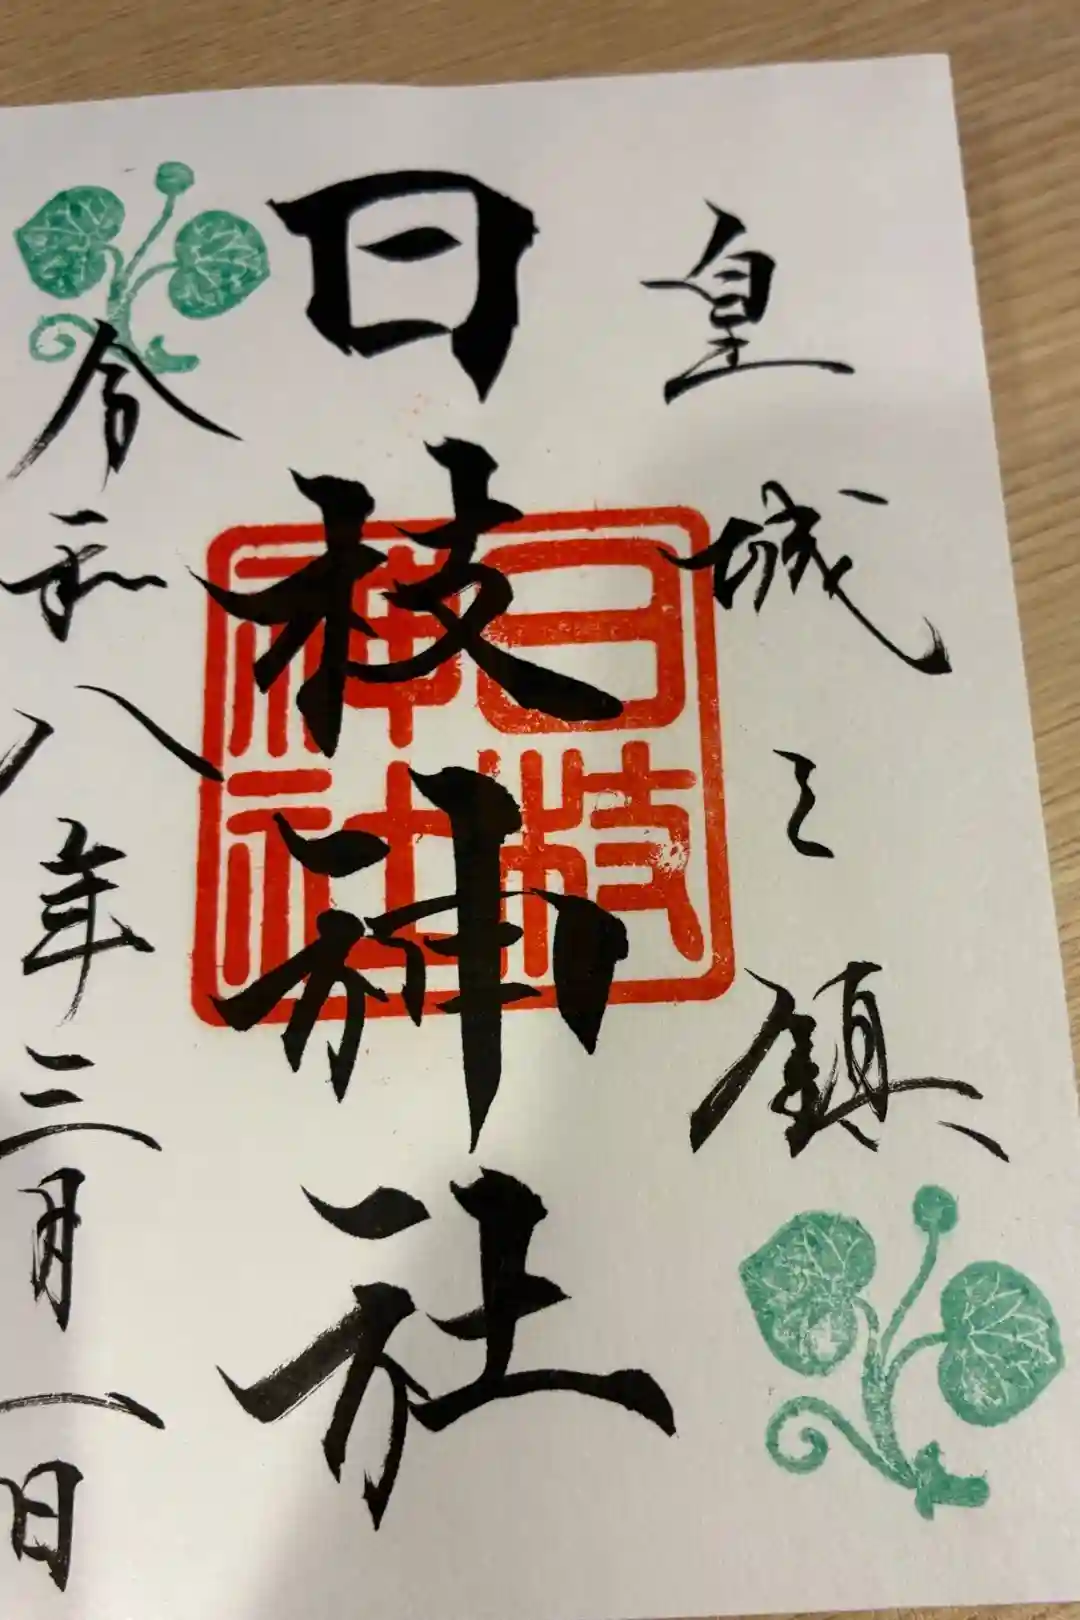 皇城之鎮
日枝神社
日枝
神社
令和八年三月一日